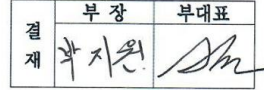 결재
부 장 부대표
박지원